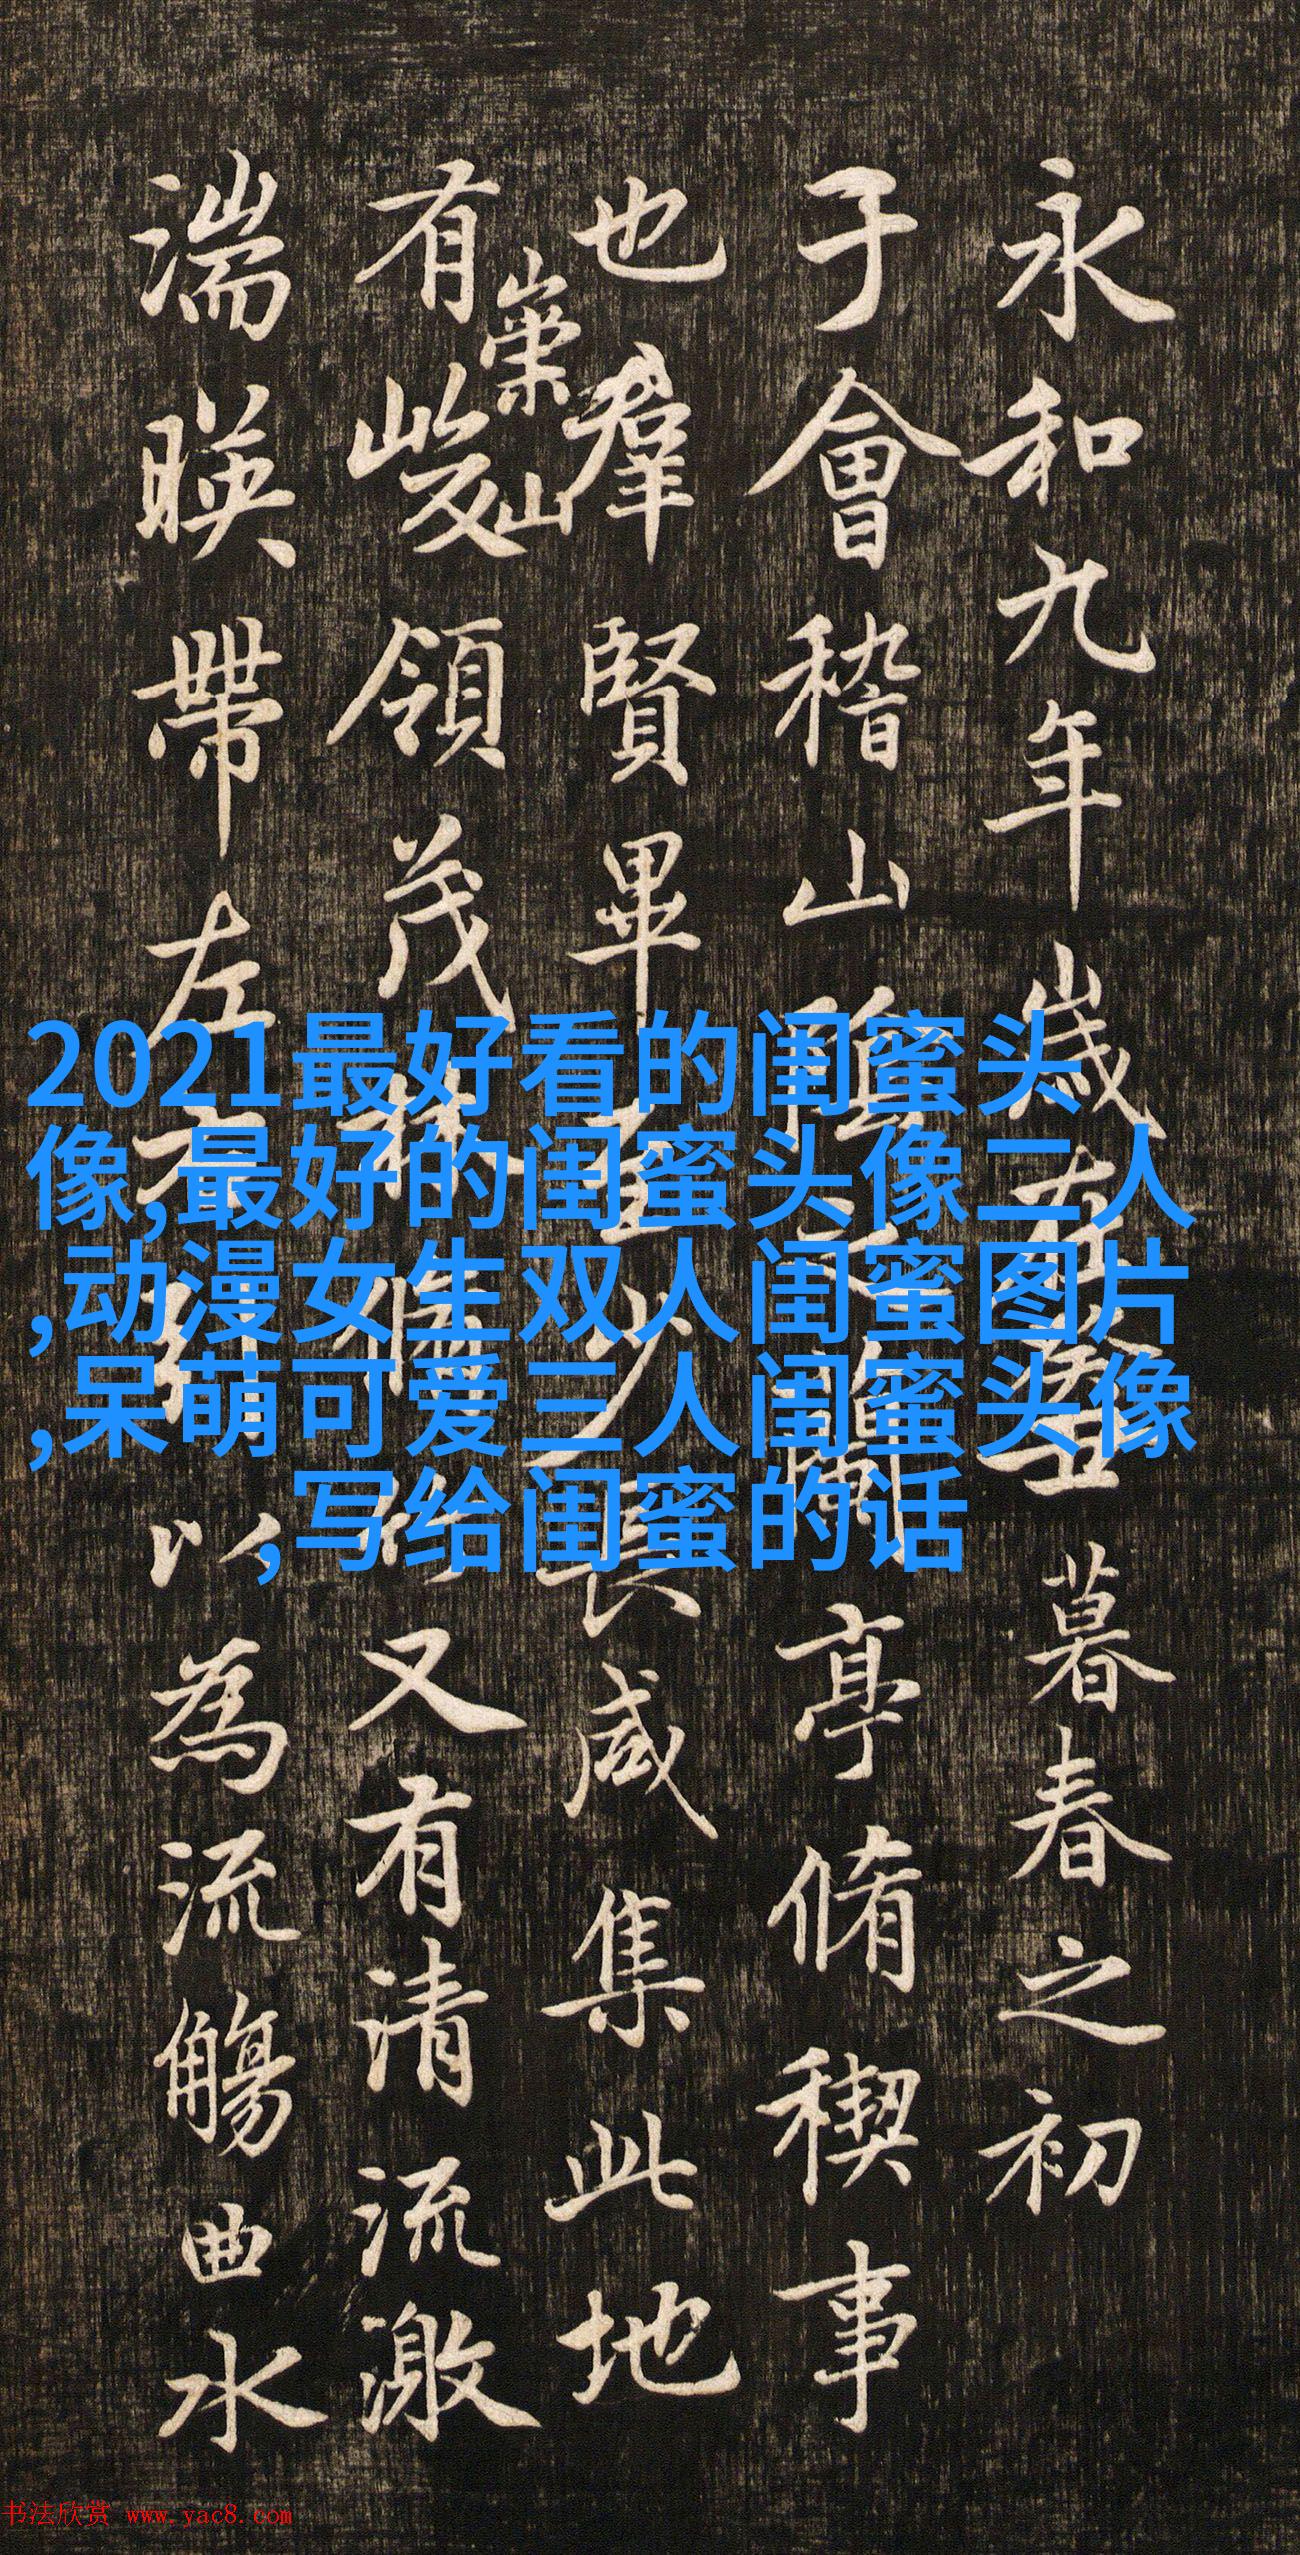 永和九年歲在癸丑暮春之初
于會稽山陰之蘭亭脩稧事
也羣賢畢至少長咸集此地
有崇山峻領茂林脩竹又有清流激
湍暎帶左右引以為流觴曲水
2021最好看的闺蜜头
像,最好的闺蜜头像二人
,动漫女生双人闺蜜图片
,呆萌可爱三人闺蜜头像
,写给闺蜜的话
书法欣赏 www.yac8.com